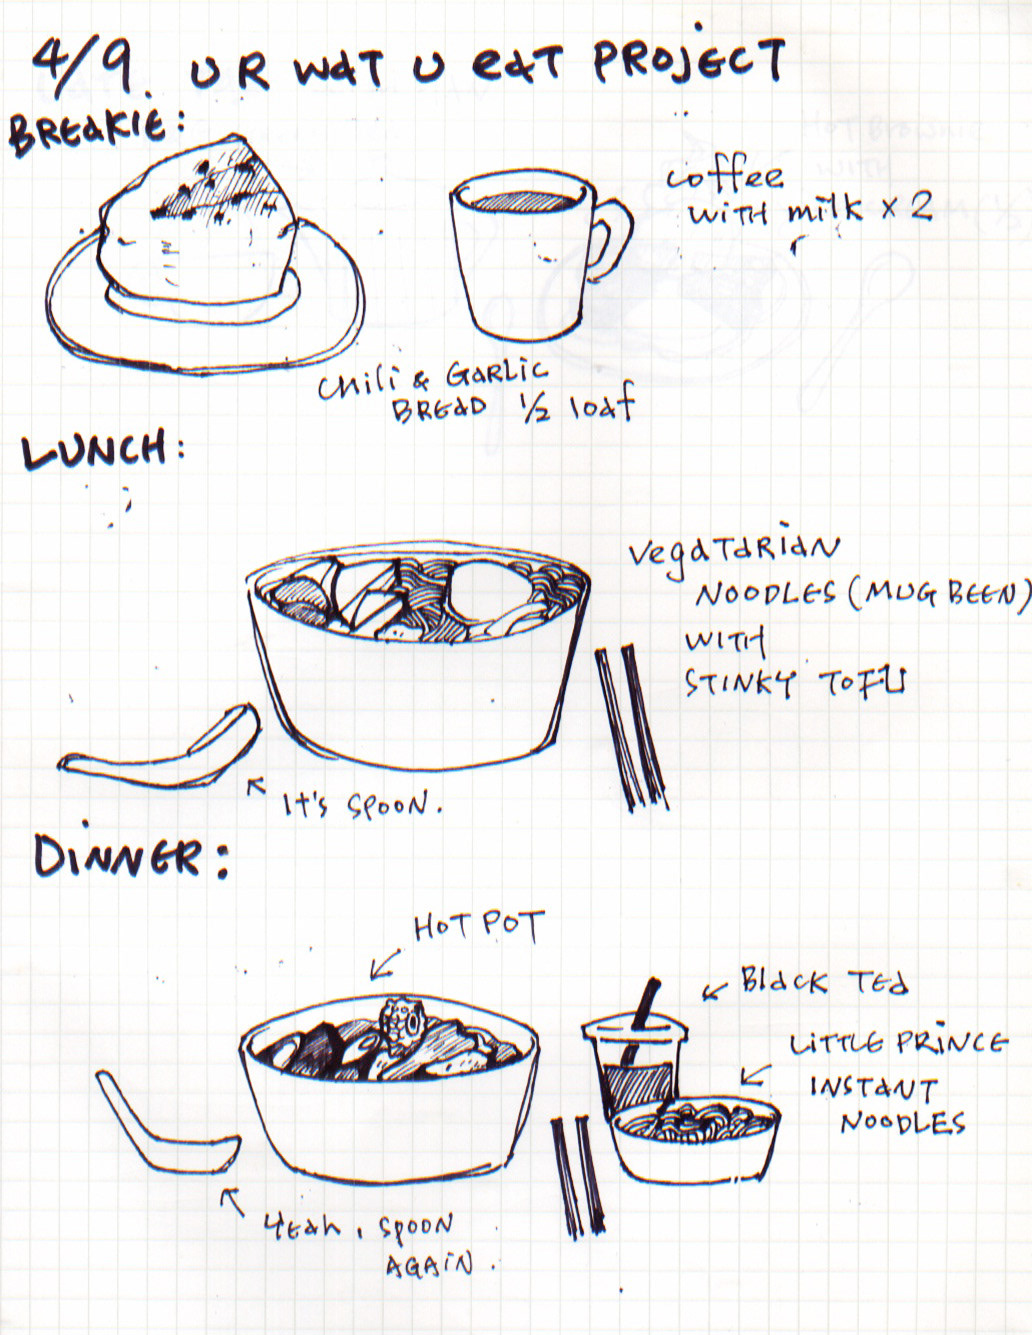 4/9. U R WaT U eaT PROJECT
BREAKIE:
coffee
WITH milk x 2
Chili & GARLIC
BREAD 1/2 loaf
LUNCH:
VegaTaRiAN
NOODLES (MUG BEEN)
WITH
STINKY TOFU
IT'S SPOON.
DiNNER:
HOT POT
BlaCK TEa
LiTTLE PRINCE
INSTANT
NOODLES
YEah, SPOON
AGAiN.